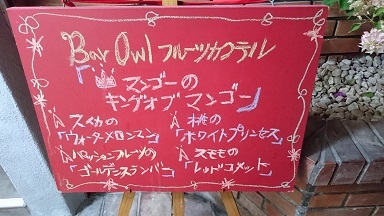 Bar Owl フルーツカクテル
「マンゴーの
キングオブマンゴー」
スイカの
「ウォーターメロンマン」
桃の
「ホワイトプリンセス」
パッションフルーツの
「ゴールデンスランバー」
スモモの
「レッドコメット」